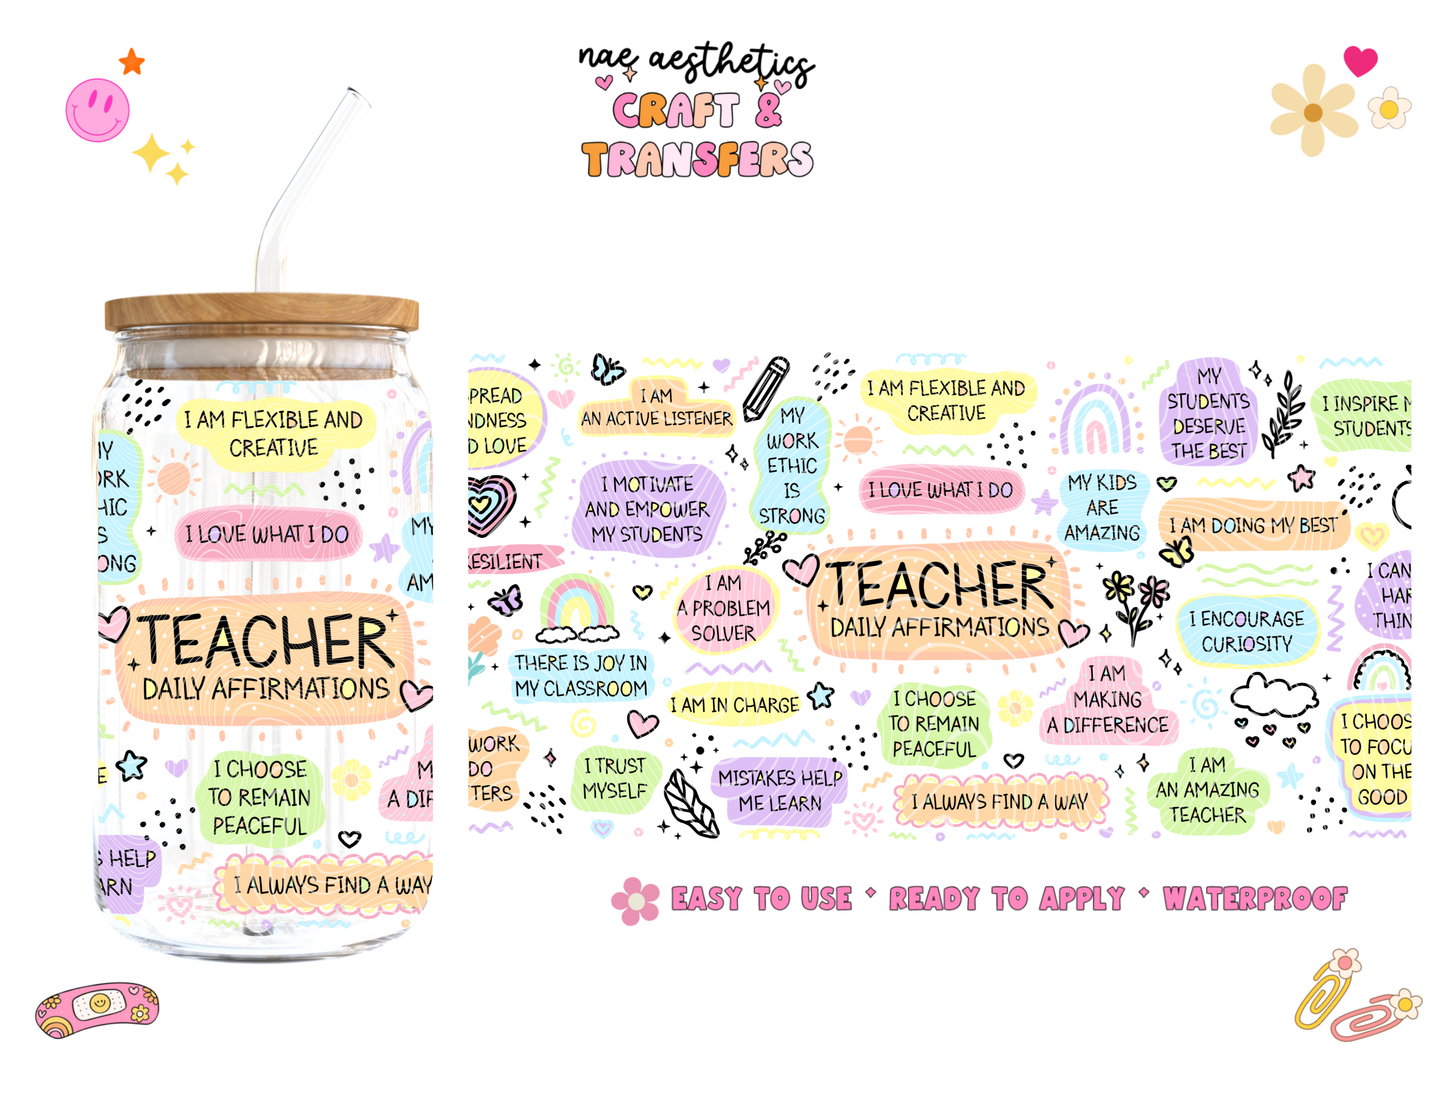 nae aesthetics
CRAFT &
TRANSFERS
I AM FLEXIBLE AND
CREATIVE
I LOVE WHAT I DO
TEACHER
DAILY AFFIRMATIONS
I CHOOSE
TO REMAIN
PEACEFUL
I ALWAYS FIND A WAY
HELP
I AM
AN ACTIVE LISTENER
MY
WORK
ETHIC
IS
STRONG
I AM FLEXIBLE AND
CREATIVE
MY
STUDENTS
DESERVE
THE BEST
I INSPIRE M
STUDENTS
PREAD
NDNESS
D LOVE
I MOTIVATE
AND EMPOWER
MY STUDENTS
I LOVE WHAT I DO
MY KIDS
ARE
AMAZING
I AM DOING MY BEST
ESILIENT
I AM
A PROBLEM
SOLVER
TEACHER
DAILY AFFIRMATIONS
I ENCOURAGE
CURIOSITY
I CAN
HAR
THIN
THERE IS JOY IN
MY CLASSROOM
I AM IN CHARGE
I CHOOSE
TO REMAIN
PEACEFUL
I AM
MAKING
A DIFFERENCE
I CHOOS
TO FOCU
ON THE
GOOD
WORK
DO
TTERS
I TRUST
MYSELF
MISTAKES HELP
ME LEARN
I ALWAYS FIND A WAY
I AM
AN AMAZING
TEACHER
EASY TO USE * READY TO APPLY * WATERPROOF